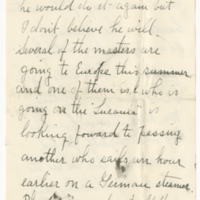 he would do it again but
I don't believe he will.
Several of the masters are
going to Europe this summer
and one of them is who is
going on the "Lucania" is
looking forward to passing
another who sails an hour
earlier on a German steamer.